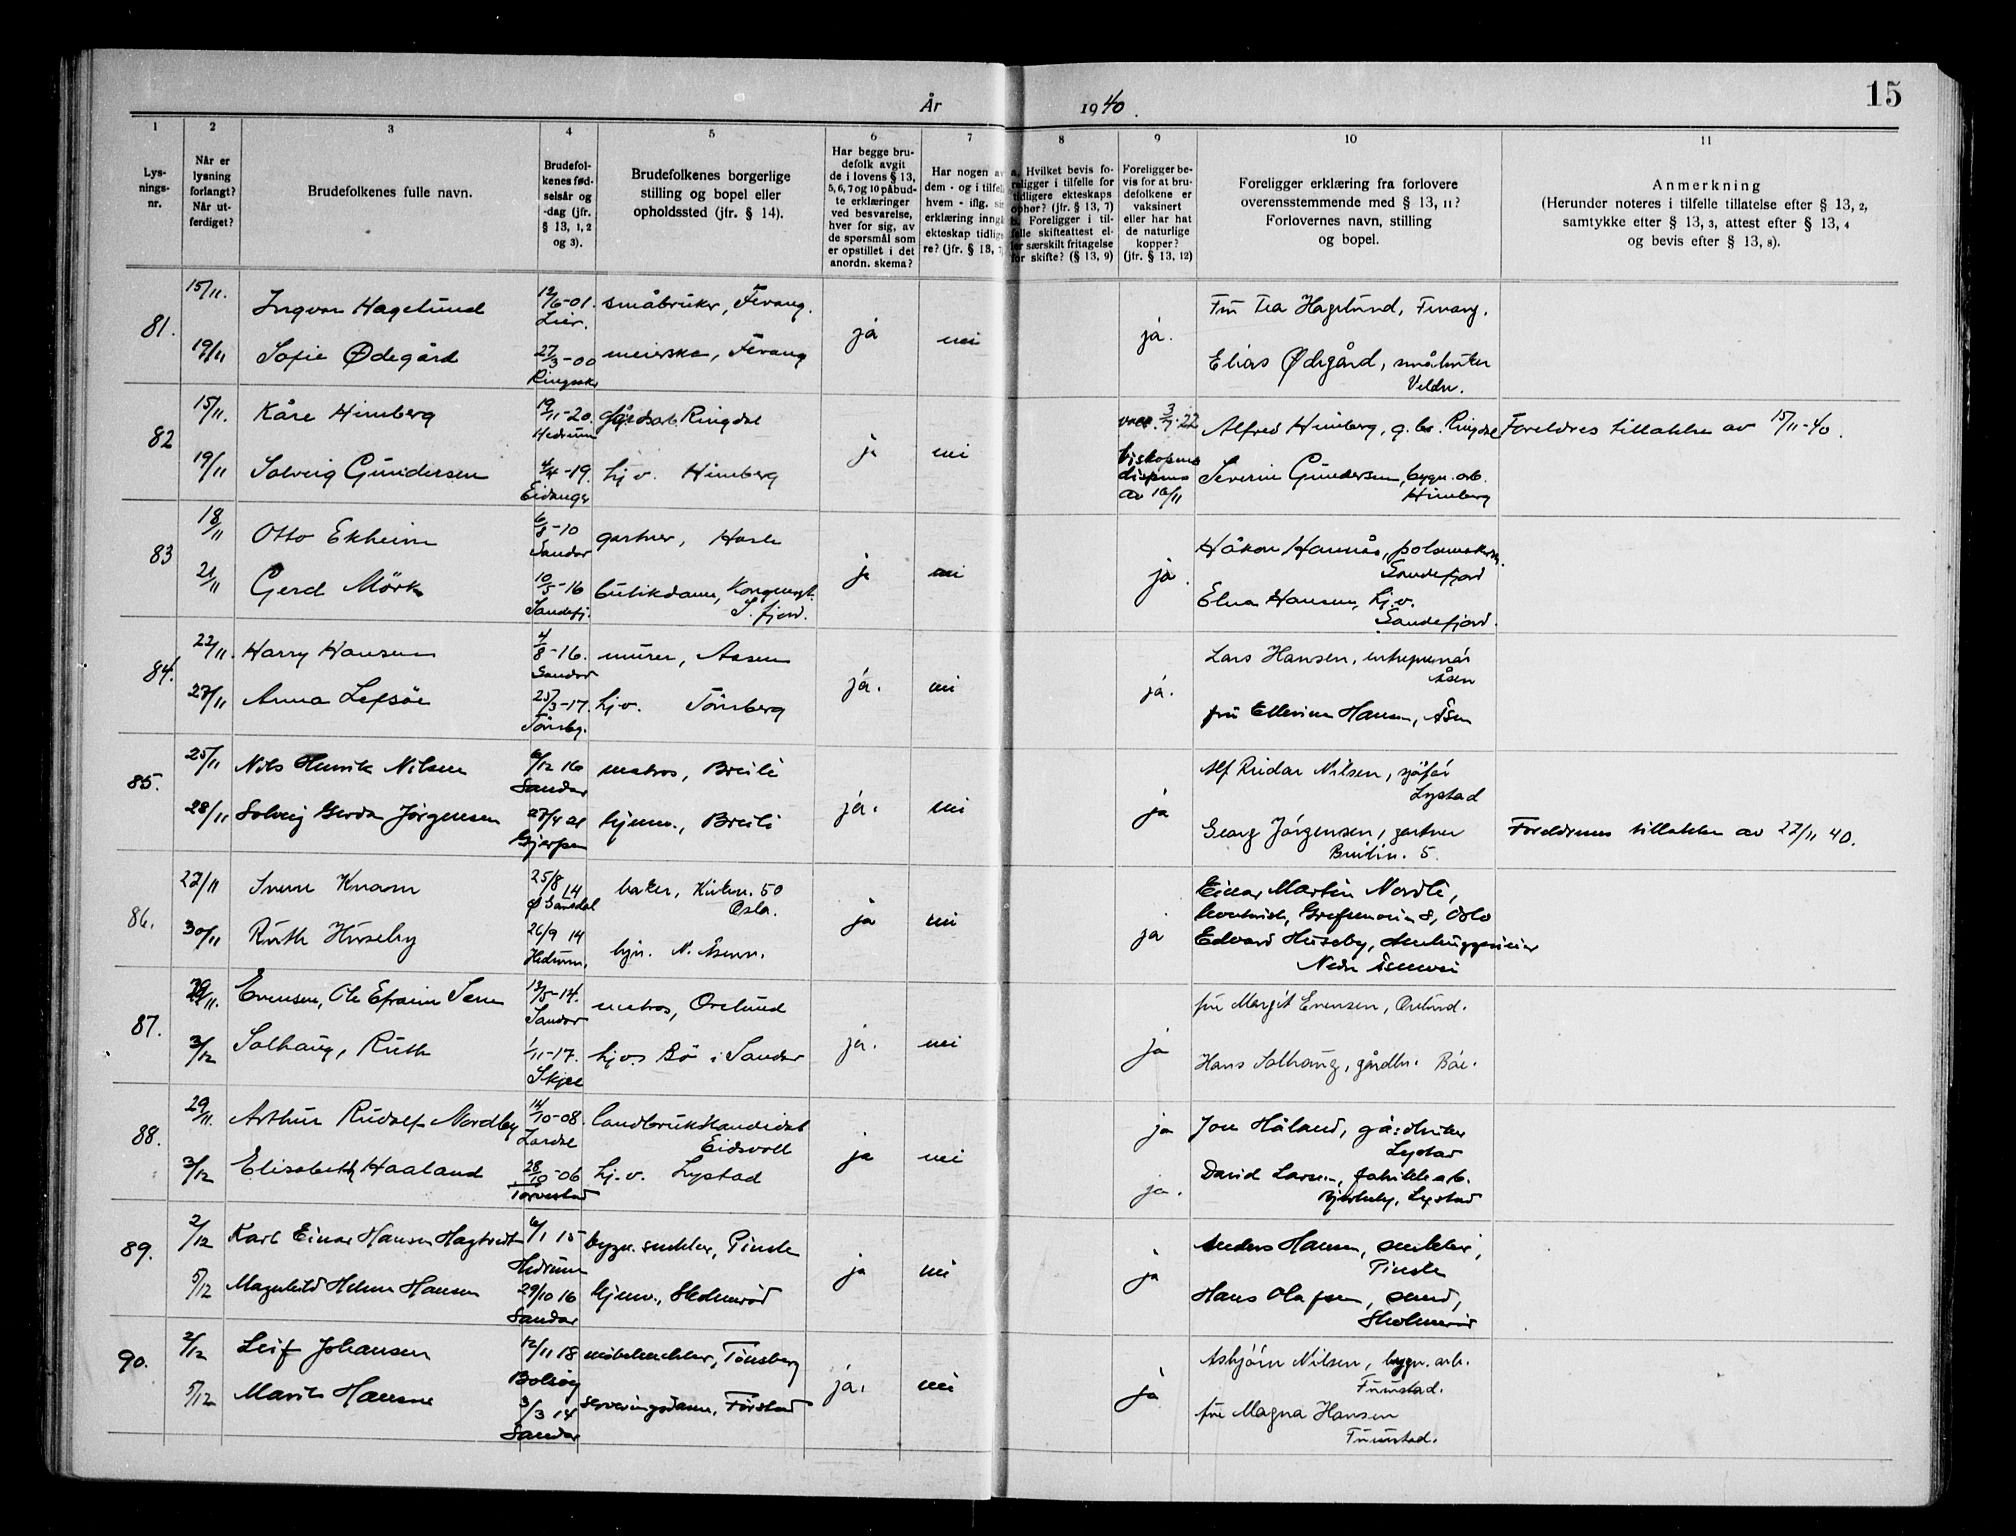 15
År 1940.
1 2 3 4 5 6 7 8 9 10 11
Lys-
nings-
nr.
Når er
lysning
forlangt?
Når ut-
ferdiget?
Brudefolkenes fulle navn.
Brudefol-
kenes fød-
selsår og
-dag (jfr.
§ 13, 1, 2
og 3).
Brudefolkenes borgerlige
stilling og bopel eller
opholdssted (jfr. § 14).
Har begge bru-
defolk avgit
de i lovens § 13,
5, 6, 7 og 10 påbud-
te erklæringer
ved besvarelse,
hver for sig, av
de spørsmål som
er opstillet i det
anordn. skema?
Har nogen av
dem - og i tilfelle
hvem - iflg. sin
erklæring inngå
ekteskap tidlige-
re? (jfr. § 13,
a. Hvilket bevis fo-
religger i tilfelle for
tidligere ekteskaps
ophør? (jfr. § 13, 7)
b. Foreligger i til-
felle skifteattest el-
ler særskilt fritagelse
for skifte? (§ 13, 9)
Foreligger be-
vis for at bru-
defolkene er
vaksinert
eller har hat
de naturlige
kopper?
(jfr. § 13, 12)
Foreligger erklæring fra forlovere
overensstemmende med § 13, 11?
Forlovernes navn, stilling
og bopel.
Anmerkning
(Herunder noteres i tilfelle tillatelse efter § 13, 2,
samtykke efter § 13, 3, attest efter § 13, 4
og bevis efter § 13, 8).
81. 15/11. Ingvar Hagelund 12/6-01. Lier. småbruker, Fevang. ja nei ja. Fru Tea Hagelund, Fevang.
19/11 Sofie Ødegård 27/3-00 Ringsaker meierske, Fevang Elias Ødegård, småbruker
Veldre.
82 15/11. Kåre Himberg 19/11-20. Hedrum gårdsarb. Ringdal ja nei vacc. 3/7-22 Alfred Himberg, g.br. Ringdal Foreldres tillatelse av 15/11-40.
19/11 Solveig Gundersen 4/4-19. Eidanger hj.v. Himberg biskopens
dispens
av 16/11 Severin Gundersen, bygn. arb.
Himberg
83 18/11 Otto Ekheim 6/8-10 Sandar gartner, Hasle ja nei ja. Håkon Hannås,
Sandefjord
21/11 Gerd Mörk 10/5-16 Sandefj. butikdame, Kongensgt.
S.fjord. Elna Hansen, hj.v.
Sandefjord.
84. 22/11. Harry Hansen 4/8-16. Sandar murer, Aasen ja. nei ja. Lars Hansen, entreprenør
Åsen
27/11 Anna Lefsöe 25/3-17. Tönsbg. hj.v. Tönsberg fru Ellevine Hansen, Åsen
85. 25/11 Nils Henrik Nilsen 6/12 16 Sandar matros, Breili ja. nei ja Alf Reidar Nilsen, sjöfar
Lystad
28/11 Solveig Gerda Jörgensen 27/4 21 Gjerpen hjemv., Breili Georg Jörgensen, gartner
Breiliv. 5. Foreldrenes tillatelse av 27/11 40.
86. 27/11 Knaom 25/8 14 baker, Kirkev. 50
Oslo. ja nei ja Einar Martin Nordli,
Grefsenveien 8, Oslo
30/11 Ruth Huseby 26/9 14 Hedrum. hjv. N. Åsenv. Edvard Huseby,
Nedre Åsenvei
87. 29/11. Evensen, Ole Efraim 13/5-14. Sandar matros, Orelund ja. nei ja fru Margit Evensen, Orelund.
3/12 Solhaug, Ruth 1/11-17. Skjee hj.v. Bö i Sandar Hans Solhaug, gårdbr. Böe.
88. 29/11. Arthur Rudolf Nordby 14/10-08. Lardal landbrukskandidat
Eidsvoll ja nei ja Jon Håland, gårdbruker
Lystad
3/12 Elisabeth Haaland 28/10-06 Torvestad hj.v. Lystad ja. David Larsen, fabrikkarb.
Bjerkely, Lystad
89. 2/12 Karl Einar Hansen Hagtvedt 6/1 15 Hedrum bygn. snekker, Pinsle ja nei ja Anders Hansen, snekker,
Pinsle
5/12 Magnhild Helene Hansen 29/10 16 Sandar hjemv., Skolmeröd Hans Olafsen, smed,
Skolmeröd
90. 2/12 Leif Johansen 12/11 18 Bolsöy möbelsnekker, Tönsberg ja. nei ja Asbjörn Nilsen, bygn. arb.
Furustad.
5/12 Marit Hansen 3/3 14 Sandar serveringsdame, Furustad fru Magna Hansen
Furustad.